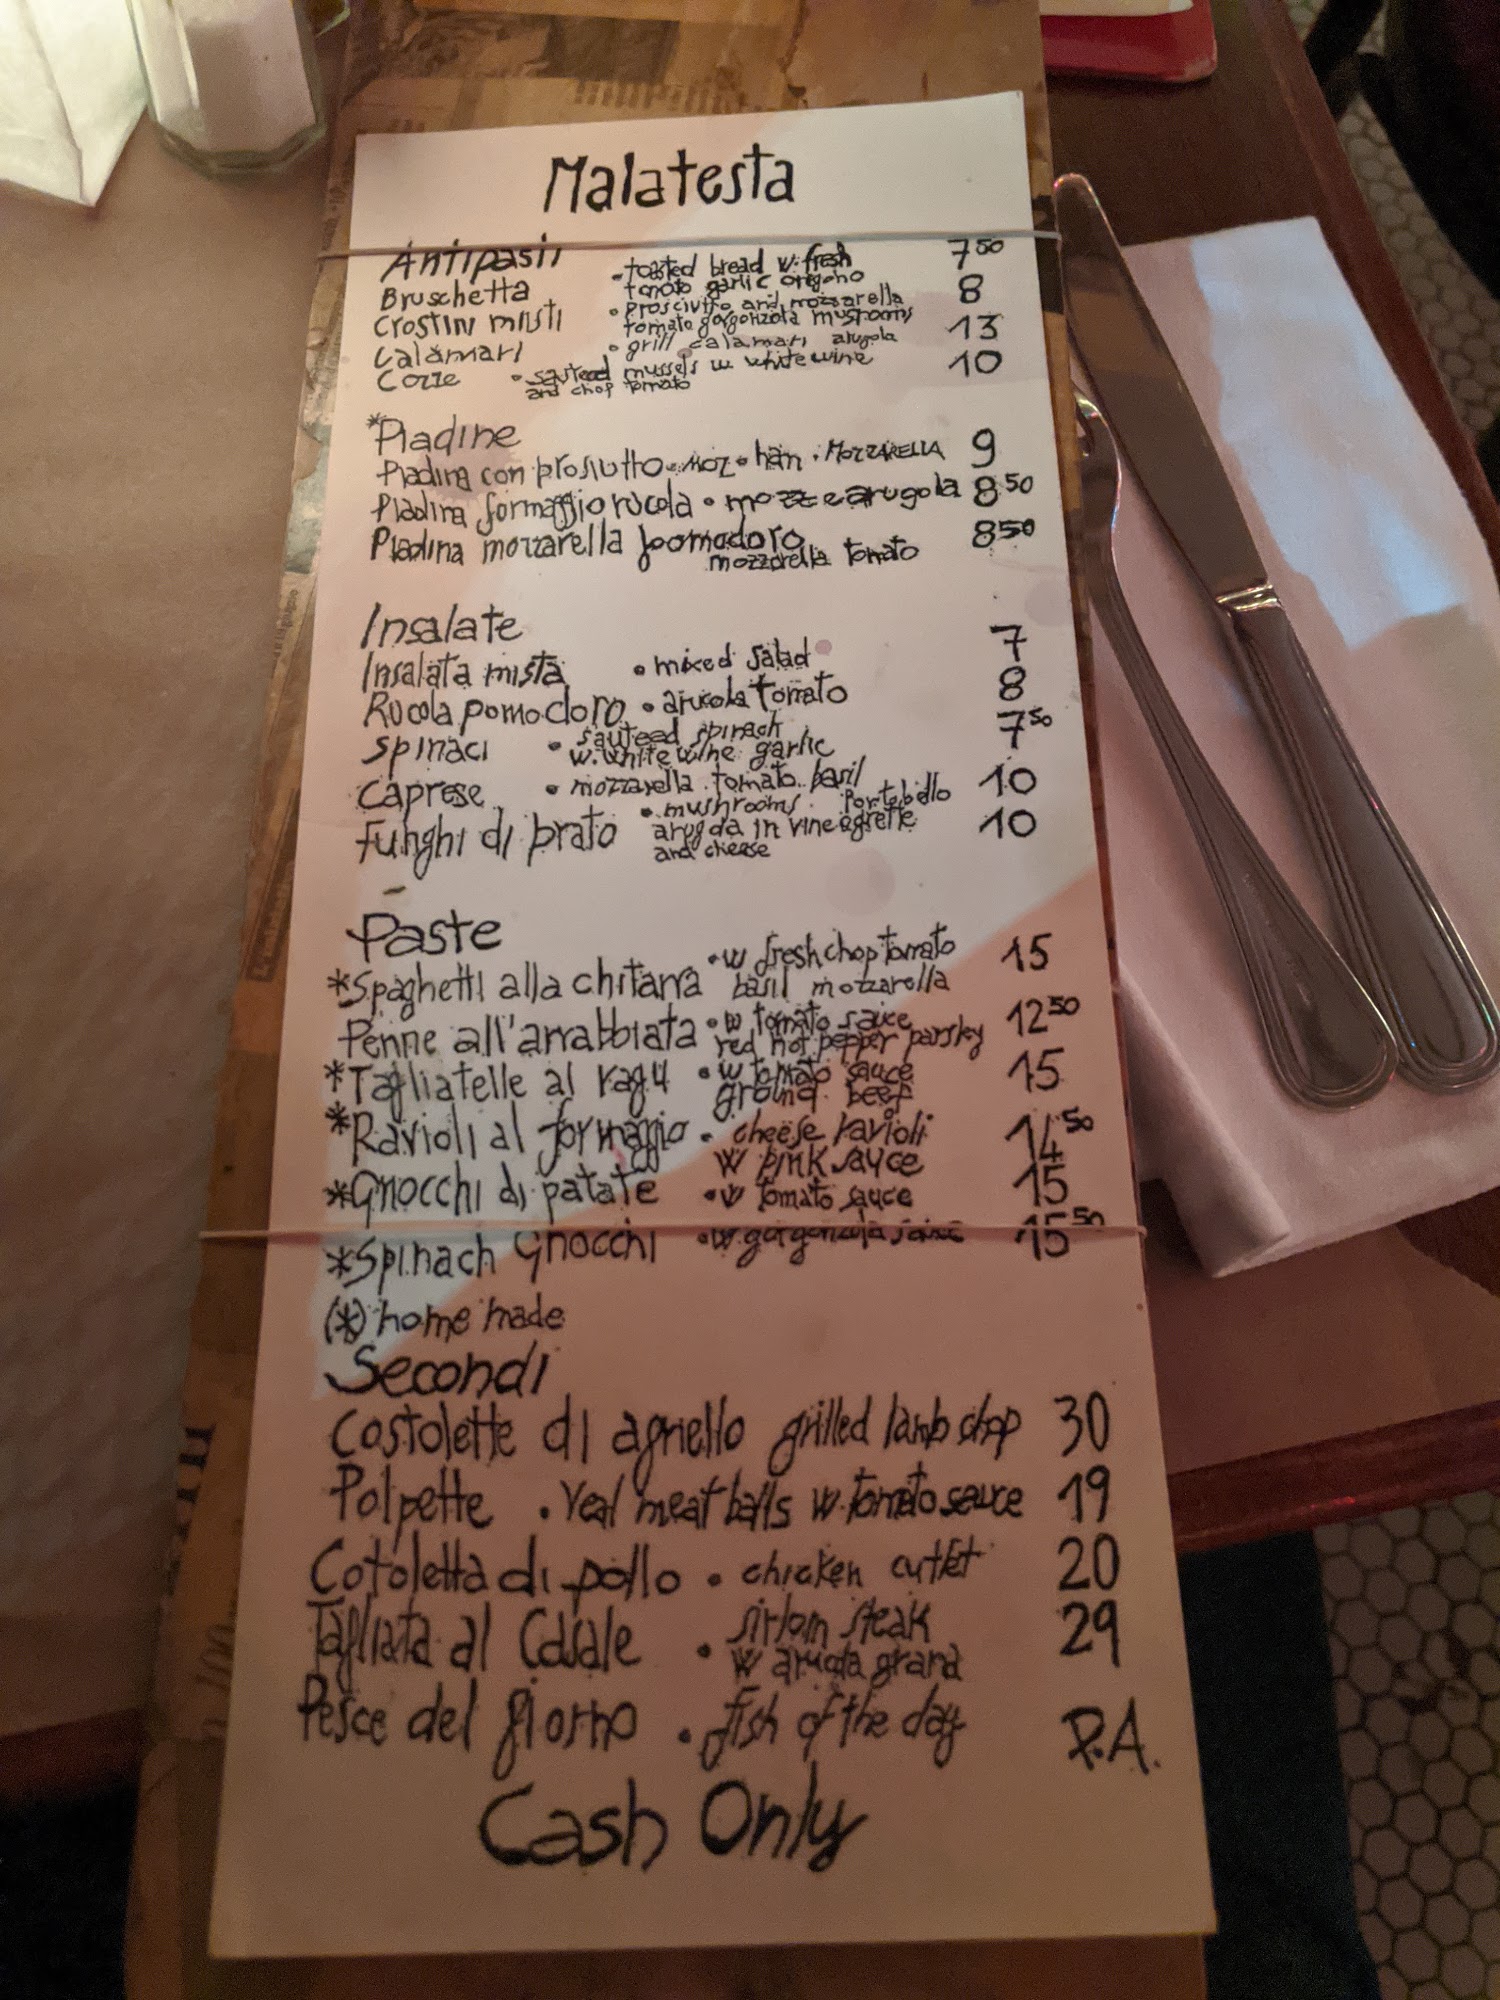 Malatesta
Antipasti
Bruschetta • toasted bread w. fresh 7⁵⁰
tomato garlic oregano
Crostini misti • prosciutto and mozzarella 8
tomato gorgonzola musrooms
Calamari • grill calamari arugola 13
Cozze • sauteed mussels w. white wine 10
and chop tomato
*Piadine
Piadina con prosiutto • moz • ham • MOZZARELLA 9
Piadina formaggio rucola • mozz e arugola 8⁵⁰
Piadina mozzarella pomodoro 8⁵⁰
mozzarella tomato
Insalate
Insalata mista • mixed salad 7
Rucola pomodoro • arucola tomato 8
Spinaci • sauteed spinach 7⁵⁰
w. white wine garlic
Caprese • mozzarella tomato basil 10
Funghi di prato • mushrooms Portobello 10
arugola in vineagrette
and cheese
Paste
*Spaghetti alla chitarra • w fresh chop tomato 15
basil mozzarella
Penne all'arrabbiata • w tomato sauce 12⁵⁰
red hot pepper parsley
*Tagliatelle al ragu • w tomato sauce 15
ground beef
*Ravioli al formaggio • cheese ravioli 14⁵⁰
w pink sauce
*Gnocchi di patate • w tomato sauce 15
*Spinach Gnocchi • w. gorgonzola sauce 15⁵⁰
(*) home made
Secondi
Costolette di agnello grilled lamb chop 30
Polpette • Veal meat balls w. tomato sauce 19
Cotoletta di pollo • chicken cutlet 20
Tagliata al Casale • sirloin steak 29
w arugola grana
Pesce del giorno • fish of the day P.A.
Cash Only